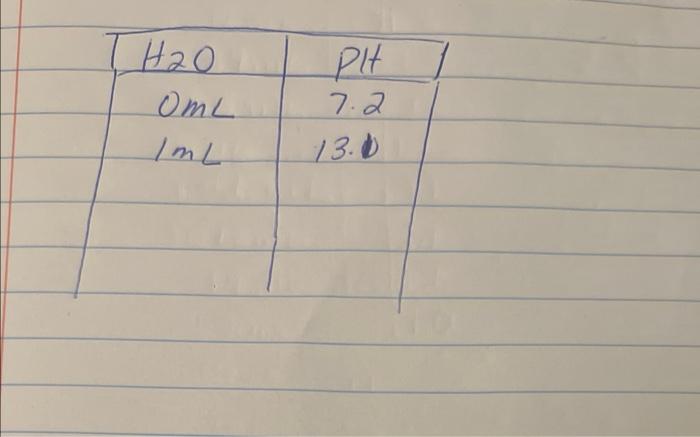 H2O PH
0mL 7.2
1mL 13.0